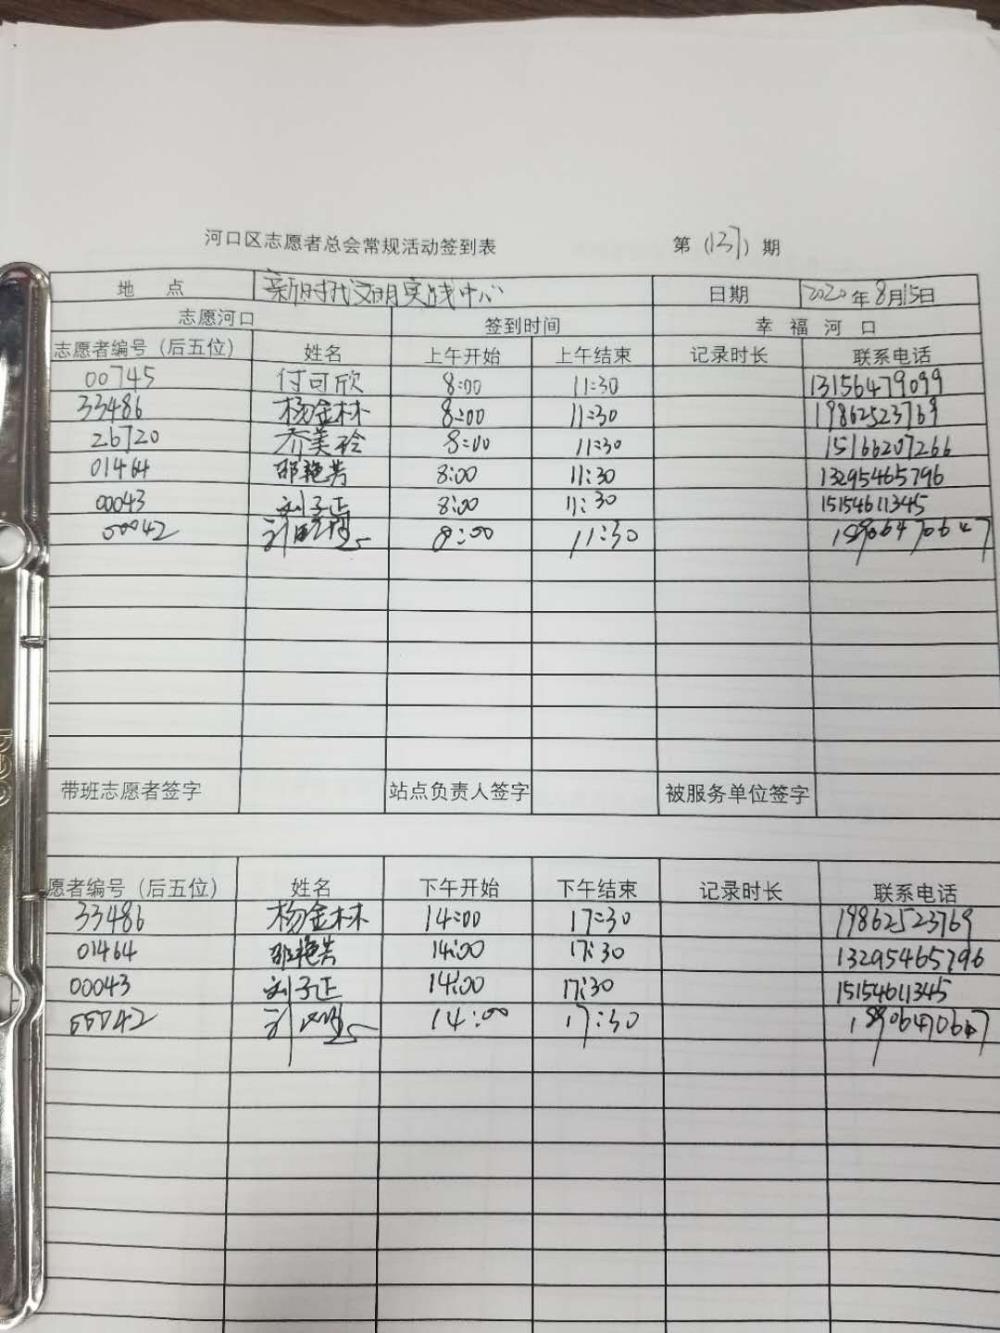 河口区志愿者总会常规活动签到表 第(137)期
地 点 新时代文明实践中心 日期 2020年8月15日
志愿河口 签到时间 幸 福 河 口
志愿者编号（后五位） 姓名 上午开始 上午结束 记录时长 联系电话
00745 付可欣 8:00 11:30 13156479099
33486 杨金林 8:00 11:30 19862523769
26720 乔美玲 8:00 11:30 15166207266
01464 邵艳芳 8:00 11:30 13295465796
00043 刘子正 8:00 11:30 15154611345
00042 8:00 11:30 18906470647
带班志愿者签字 站点负责人签字 被服务单位签字
愿者编号（后五位） 姓名 下午开始 下午结束 记录时长 联系电话
33486 杨金林 14:00 17:30 19862523769
01464 邵艳芳 14:00 17:30 13295465796
00043 刘子正 14:00 17:30 15154611345
00042 14:00 17:30 18906470647